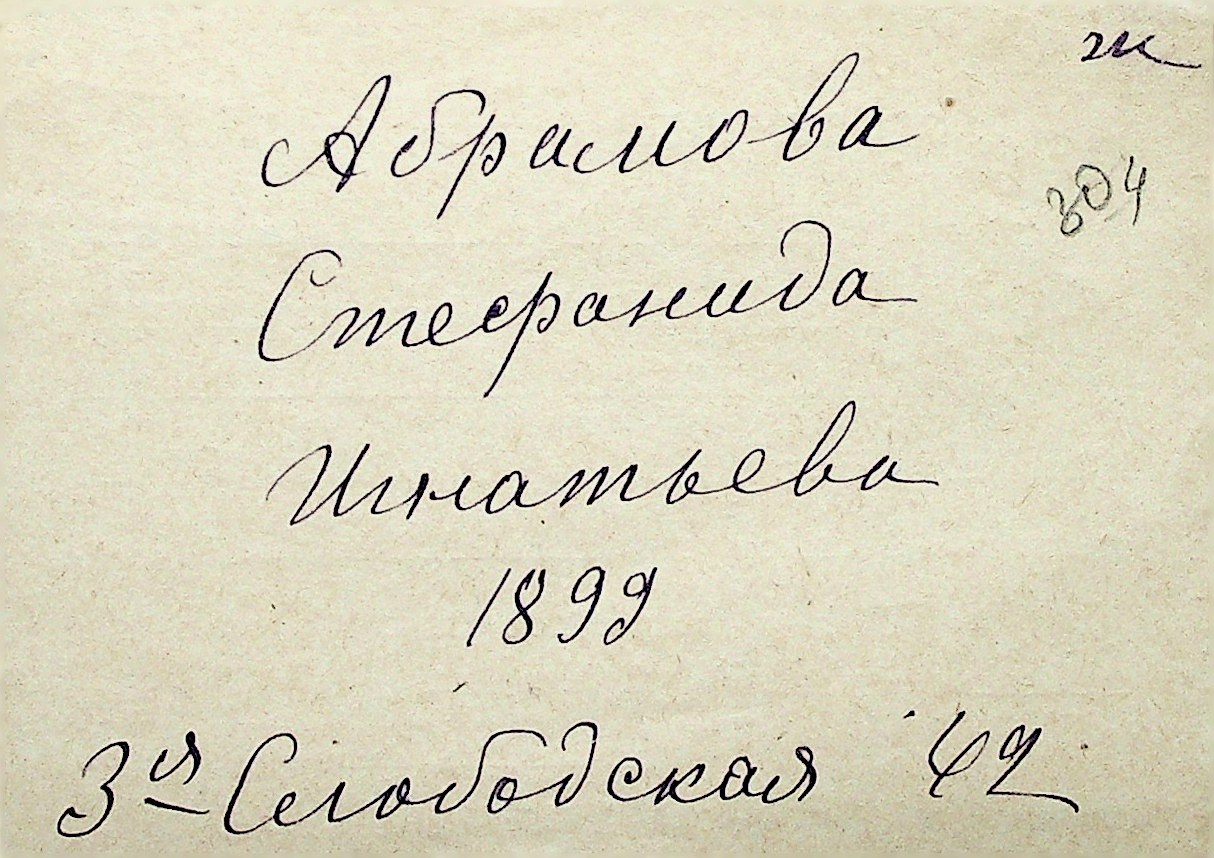 ж
Абрамова
304
Стефанида
Игнатьева
1899
3ья Слободская 42